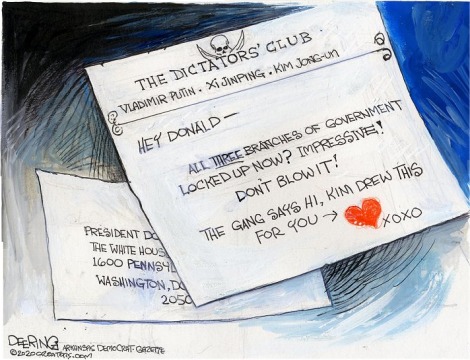 THE DICTATORS' CLUB
VLADIMIR PUTIN · XI JINPING · KIM JONG-UN
HEY DONALD—
ALL THREE BRANCHES OF GOVERNMENT
LOCKED UP NOW? IMPRESSIVE!
DON'T BLOW IT!
THE GANG SAYS HI, KIM DREW THIS
FOR YOU → XOXO
PRESIDENT DO
THE WHITE HOUS
1600 PENNSYL
WASHINGTON, DC
2050
DEERING ARKANSAS DEMOCRAT-GAZETTE
©2020 CREATORS.COM